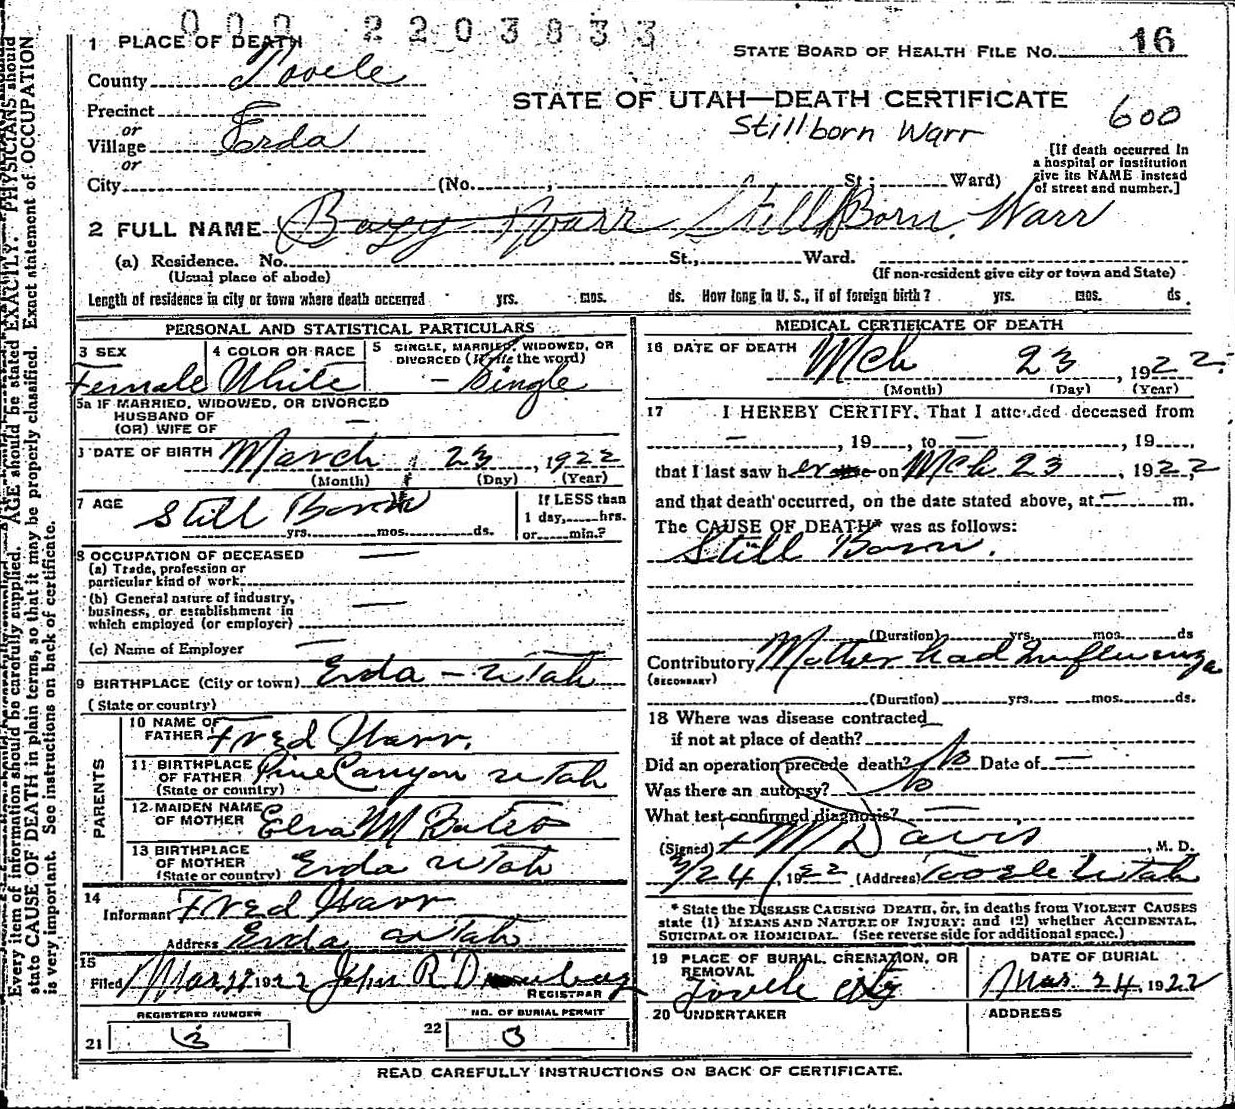 000 2203833
1 PLACE OF DEATH
STATE BOARD OF HEALTH FILE NO. 16
County Tooele
STATE OF UTAH—DEATH CERTIFICATE
Stillborn Warr
600
Precinct
or
Village Erda
or
City (No. , St.; Ward)
[If death occurred in a hospital or institution give its NAME instead of street and number.]
2 FULL NAME Warr Still Born Warr
(a) Residence. No. St., Ward.
(Usual place of abode)
(If non-resident give city or town and State)
Length of residence in city or town where death occurred yrs. mos. ds. How long in U. S., if of foreign birth? yrs. mos. ds.
PERSONAL AND STATISTICAL PARTICULARS
3 SEX
Female
4 COLOR OR RACE
White
5 SINGLE, MARRIED, WIDOWED, OR DIVORCED (Write the word)
- Single
5a IF MARRIED, WIDOWED, OR DIVORCED
HUSBAND OF
(OR) WIFE OF —
DATE OF BIRTH March 23, 1922
(Month) (Day) (Year)
7 AGE
Still Born
yrs. mos. ds.
If LESS than
1 day, hrs.
or min.?
8 OCCUPATION OF DECEASED —
(a) Trade, profession or
particular kind of work
(b) General nature of industry,
business, or establishment in
which employed (or employer) —
(c) Name of Employer —
9 BIRTHPLACE (City or town) Erda - Utah
(State or country)
PARENTS
10 NAME OF
FATHER Fred Warr.
11 BIRTHPLACE
OF FATHER Pine Canyon Utah
(State or country)
12 MAIDEN NAME
OF MOTHER Elva M Bates
13 BIRTHPLACE
OF MOTHER
(State or country) Erda Utah
14
Informant Fred Warr
Address Erda Utah
15
Filed 1922 John R
REGISTRAR
REGISTERED NUMBER
21 3
NO. OF BURIAL PERMIT
22 3
MEDICAL CERTIFICATE OF DEATH
16 DATE OF DEATH Mch 23, 1922
(Month) (Day) (Year)
17 I HEREBY CERTIFY, That I attended deceased from
—, 19 , to —, 19 ,
that I last saw her on Mch 23, 1922
and that death occurred, on the date stated above, at — m.
The CAUSE OF DEATH* was as follows:
Still Born.
(Duration) yrs. mos. ds
Contributory Mother had Influenza
(SECONDARY)
(Duration) yrs. mos. ds.
18 Where was disease contracted
if not at place of death?
Did an operation precede death? No Date of —
Was there an autopsy? No
What test confirmed diagnosis? —
(Signed) M Davis, M. D.
3/24, 1922 (Address) Tooele Utah
* State the DISEASE CAUSING DEATH, or, in deaths from VIOLENT CAUSES
state (1) MEANS AND NATURE OF INJURY; and (2) whether ACCIDENTAL,
SUICIDAL OR HOMICIDAL. (See reverse side for additional space.)
19 PLACE OF BURIAL, CREMATION, OR
REMOVAL
Tooele City
DATE OF BURIAL
Mar. 24, 1922
20 UNDERTAKER
ADDRESS
READ CAREFULLY INSTRUCTIONS ON BACK OF CERTIFICATE.
Every item of information should be carefully supplied. AGE should be stated EXACTLY. PHYSICIANS should
state CAUSE OF DEATH in plain terms, so that it may be properly classified. Exact statement of OCCUPATION
is very important. See instructions on back of certificate.